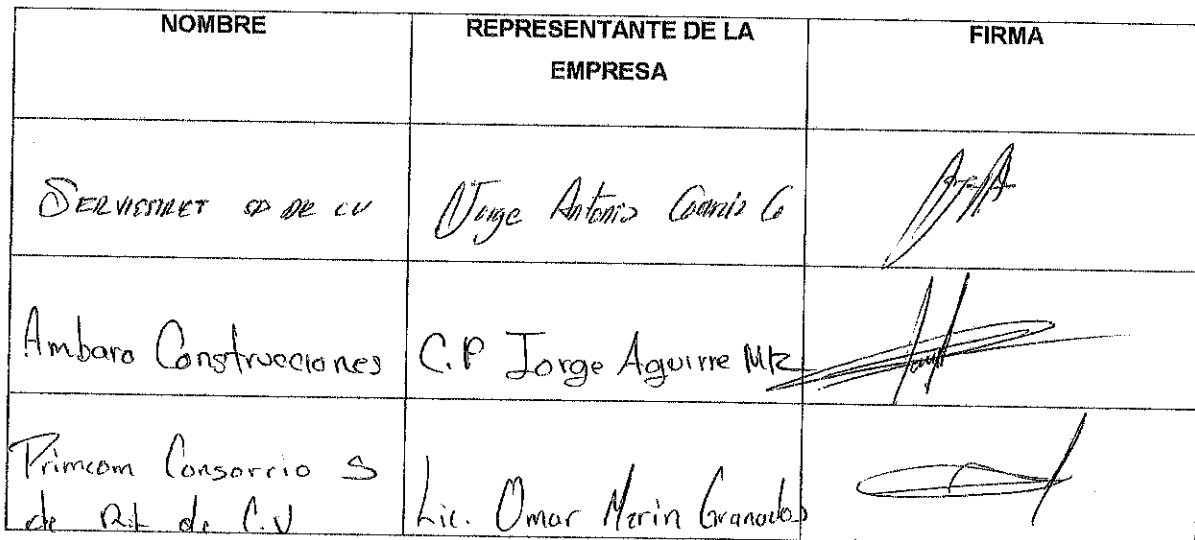 NOMBRE
REPRESENTANTE DE LA
EMPRESA
FIRMA
DE CV
Jorge Antonio
Ambaro Construcciones
C.P Jorge Aguirre Mtz
Primcom Consorcio S
de R.L de C.V
Lic. Omar Marin Granados